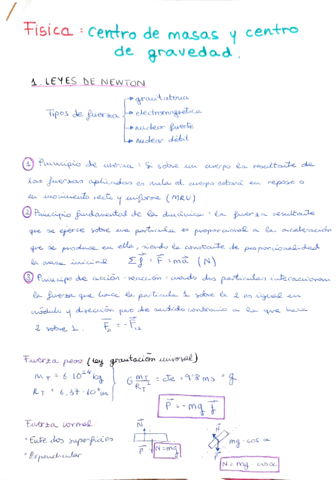 Física: centro de masas y centro
de gravedad.
1. LEYES DE NEWTON
Tipos de fuerza
→ gravitatoria
→ electromagnética
→ nuclear fuerte
→ nuclear débil
① Principio de inercia: Si sobre un cuerpo la resultante de
las fuerzas aplicadas es nula el cuerpo estará en reposo o
en movimiento recto y uniforme (MRU)
② Principio fundamental de la dinámica: la fuerza resultante
que se ejerce sobre una partícula es proporcional a la aceleración
que se produce en ella, siendo la constante de proporcionalidad
la masa inercial ΣF = F = ma (N)
③ Principio de acción-reacción: cuando dos partículas interaccionan
la fuerza que hace la partícula 1 sobre la 2 es igual en
módulo y dirección pero de sentido contrario a la que hace
2 sobre 1.
Fuerza peso (ley gravitación universal)
m_T = 6·10²⁴ kg
R_T = 6,37·10⁶ m
G m_T/R_T² = cte = 9'8 m/s = g
P = -mg
Fuerza normal
• Entre dos superficies
• Perpendicular
N
P
N = mg
N
P
mg·cos α
N = mg·cos α